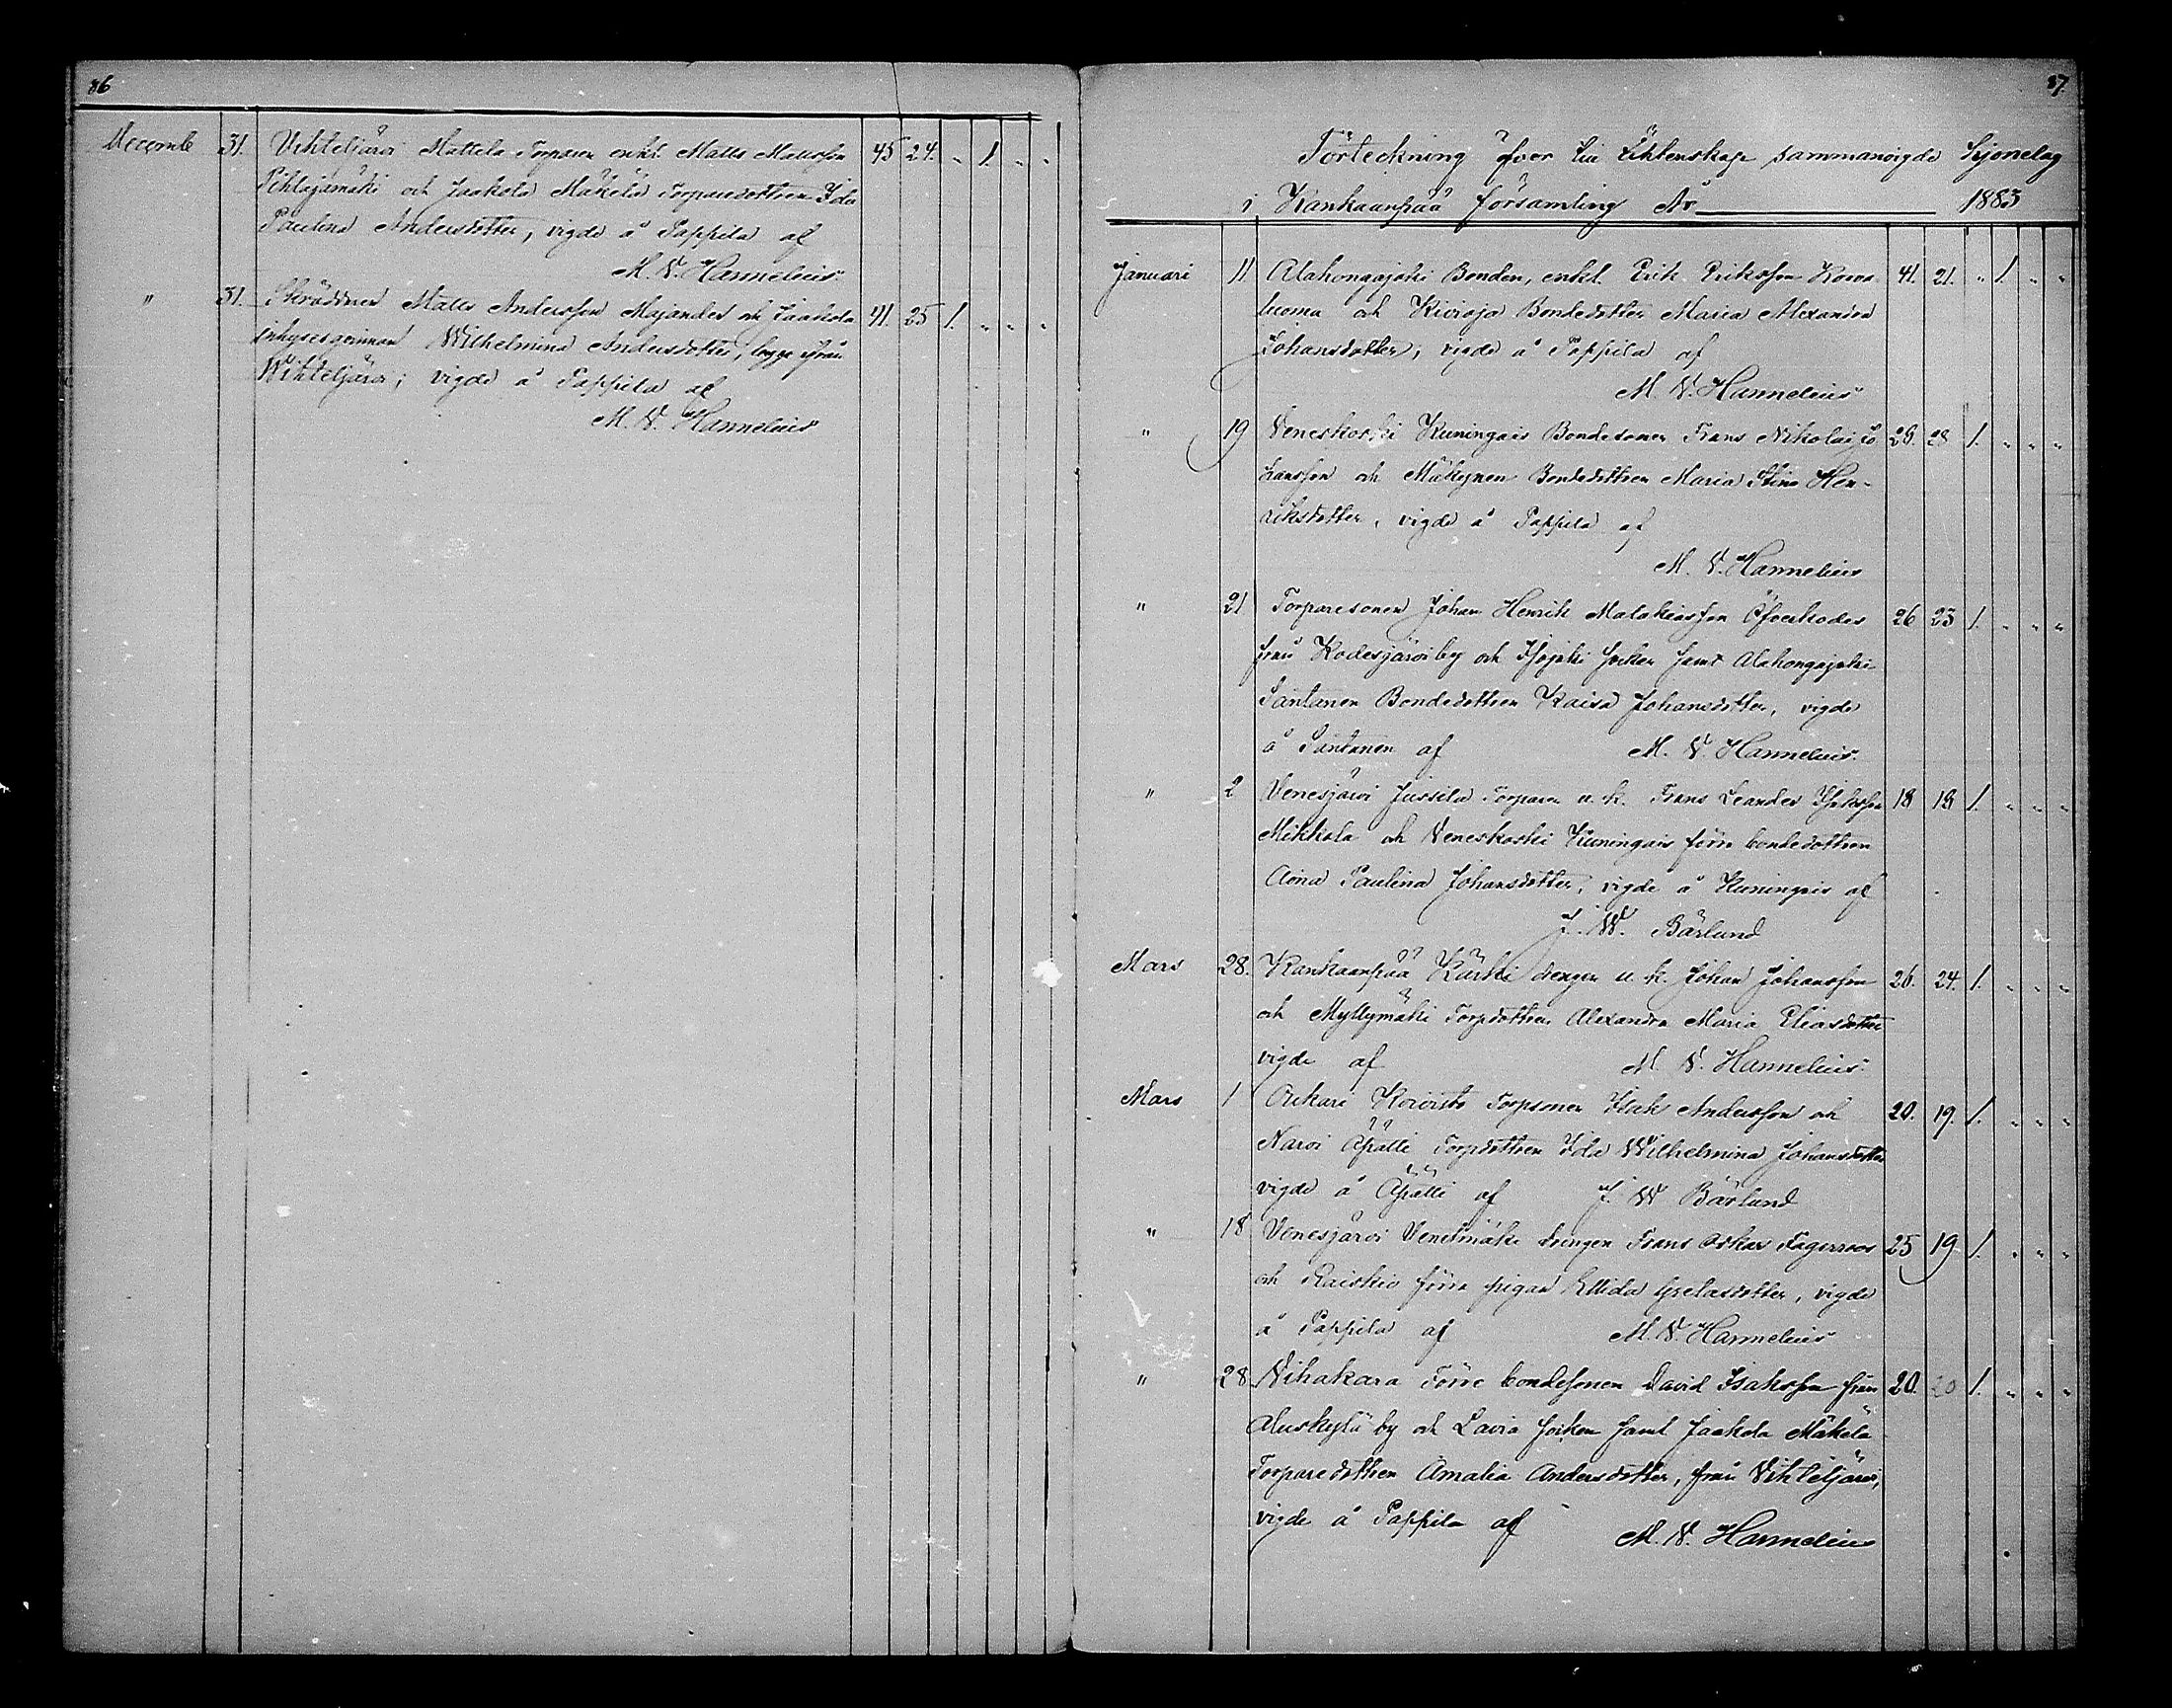 86
Decemb 31. Vihteljärvi Mattela Torparen enkl. Matts Mattsson 45 24. " 1. " "
Pihlajamäki och Jaakola Mäkelä Torparedottren Ida
Paulina Andersdotter, vigde å Pappila af
M. V. Hannelius.
" 31. Skräddren Matts Andersson Majander och Jaakola 41. 25 1. " " "
inhysesqvinnan Wilhelmina Andersdotter, begge från
Vihteljärvi; vigde å Pappila af
M. V. Hannelius
87.
Förteckning öfver till Ecktenskap sammanvigde Hjonelag
i Kankaanpää församling År 1883
Januari 11 Alahongajoki Bonden, enkl. Erik Eriksson Korva 41. 21. " 1. " "
luoma och Kivioja Bondedotter Maria Alexandra
Johansdotter; vigde å Pappila af
M. V. Hannelius
" 19 Veneskoski Kuningais Bondesonen Frans Nikolai Jo 26. 28 1. " " "
hansson och Mäkynen Bondedottren Maria Stina Hen-
riksdotter, vigde å Pappila af
M. V. Hannelius
" 21 Torparesonen Johan Henrik Malakiasson Öfverkodes 26 23 1. " " "
från Kodesjärvi by och Isojoki socken samt Alahongajoki
Santanen Bondedottren Kaisa Johansdotter, vigde
å Santanen af M. V. Hannelius.
" 2 Venesjärvi Jussila Torparen u. k. Frans Leander Isaksson 18 19 1. " " "
Mikkola och Veneskoski Kuningais förre bondedottren
Aina Paulina Johansdotter, vigde å Kuningais af
J. W. Bärlund
Mars 28. Kankaanpää Kärki drengen u. k. Johan Johansson 26. 24. 1. " " "
och Myllymäki Torpdottren Alexandra Maria Eliasdotter
vigde af M. V. Hannelius.
Mars 1 Koivisto Torpsonen Isak Andersson och 20. 19. 1. " " "
Narvi Äpätti Torpdottren Ida Wilhelmina Johansdotter
vigde å Äpätti af J. W Bärlund
" 18 Venesjärvi drengen Frans Oskar Fagerroos 25 19 1. " " "
och Raiskio förra pigan Ellida Gretasdotter, vigde
å Pappila af M. V. Hannelius
" 28 Vihakara Förre bondesonen David Isaksson från 20. 20 1. " " "
Auskylä by och Lavia socken samt Jaakola Mäkelä
Torparedottren Amalia Andersdotter, från Vihteljärvi,
vigde å Pappila af M. V. Hannelius